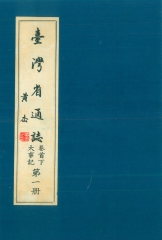 臺灣省通誌
卷首下
大事記
第一册